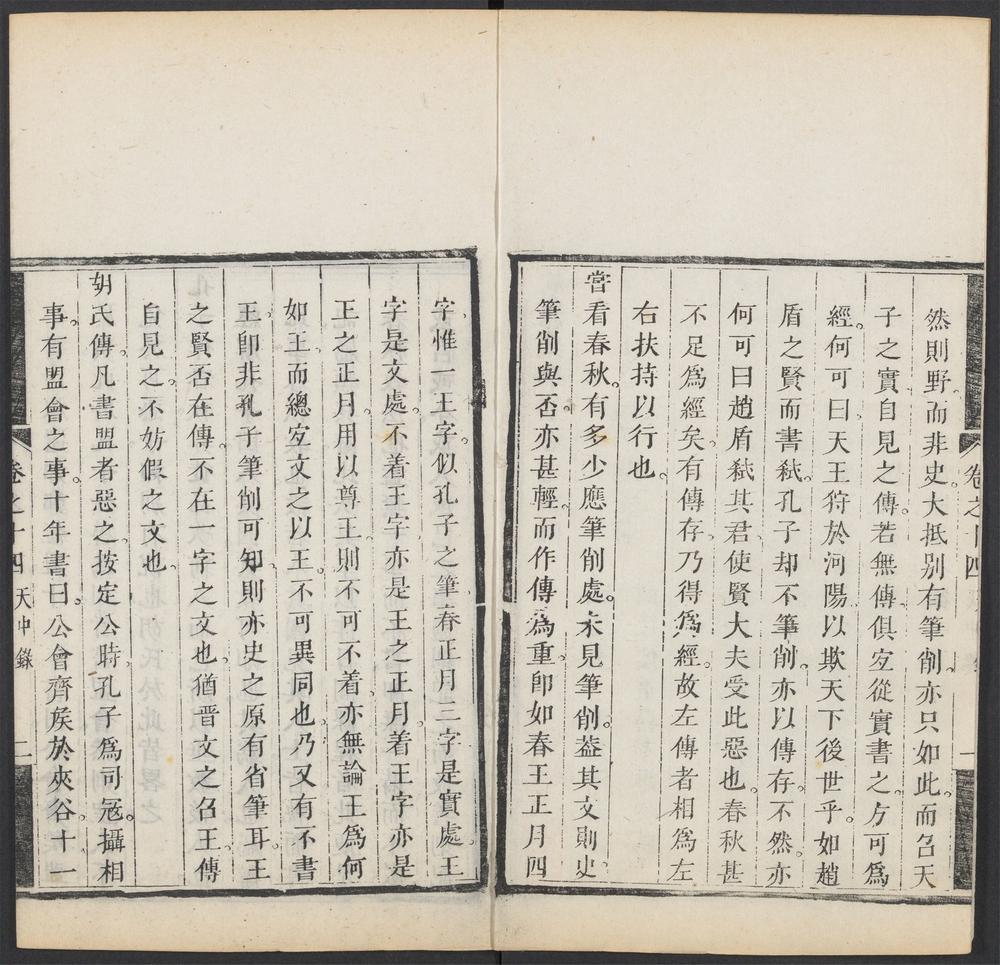 卷之十四
一
然則野。而非史。大抵別有筆削。亦只如此。而召天
子之實自見之傳。若無傳俱㝎從實書之。方可爲
經。何可曰天王狩於河陽以欺天下後世乎。如趙
盾之賢而書弑。孔子却不筆削。亦以傳存。不然。亦
何可曰趙盾弑其君。使賢大夫受此惡也。春秋甚
不足爲經矣。有傳存。乃得爲經。故左傳者相爲左
右扶持以行也。
嘗看春秋。有多少應筆削處。未見筆削。葢其文則史。
筆削與否。亦甚輕。而作傳爲重。卽如春王正月四
字。惟一王字。似孔子之筆。春正月三字。是實處。王
字是文處。不着王字亦是王之正月。着王字亦是
正之正月。用以尊王。則不可不着。亦無論王爲何
如王。而總㝎文之以王。不可異同也。乃又有不書
王。卽非孔子筆削可知。則亦史之原有省筆耳。王
之賢否在傳。不在一字之文也。猶晉文之召王。傳
自見之。不妨假之文也。
胡氏傳。凡書盟者惡之。按定公時。孔子爲司冦。攝相
事。有盟會之事。十年書曰。公會齊矦於夾谷。十一
卷之十四 天中錄
二